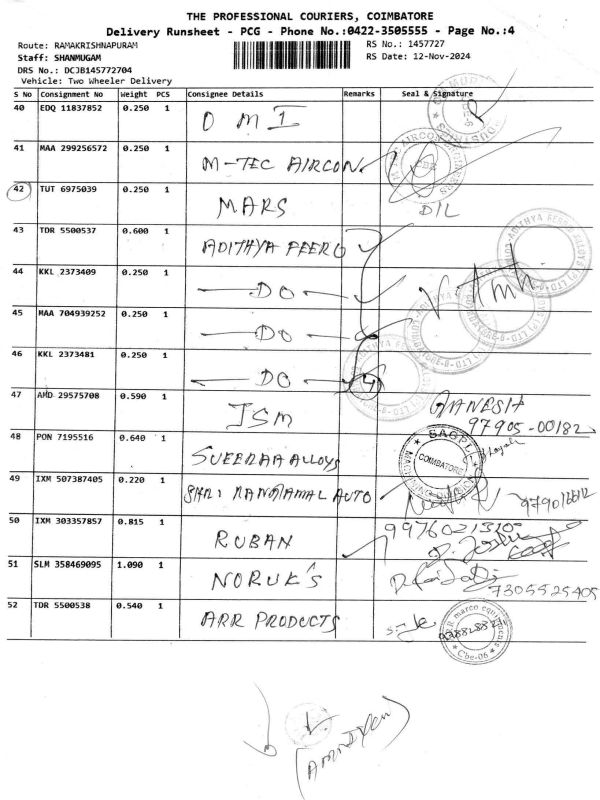 THE PROFESSIONAL COURIERS, COIMBATORE
Delivery Runsheet - PCG - Phone No.:0422-3505555 - Page No.:4
Route: RAMAKRISHNAPURAM RS No.: 1457727
Staff: SHANMUGAM RS Date: 12-Nov-2024
DRS No.: DCJB145772704
Vehicle: Two Wheeler Delivery
S No Consignment No Weight PCS Consignee Details Remarks Seal & Signature
40 EDQ 11837852 0.250 1 OMI
41 MAA 299256572 0.250 1 M-TEC AIRCON.
42 TUT 6975039 0.250 1 MARS DIL
43 TDR 5500537 0.600 1 ADITHYA FEERO
44 KKL 2373409 0.250 1 DO
45 MAA 704939252 0.250 1 DO
46 KKL 2373481 0.250 1 DO 4
47 AMD 29575708 0.590 1 JSM GANESH
97905-00182
48 PON 7195516 0.640 1 SUEERAA ALLOYS COIMBATORE
49 IXM 507387405 0.220 1 SHRI RANGAMAL AUTO
50 IXM 303357857 0.815 1 RUBAN
51 SLM 358469095 1.090 1 NORUK'S 7305525405
52 TDR 5500538 0.540 1 ARR PRODUCTS
Cbe-06